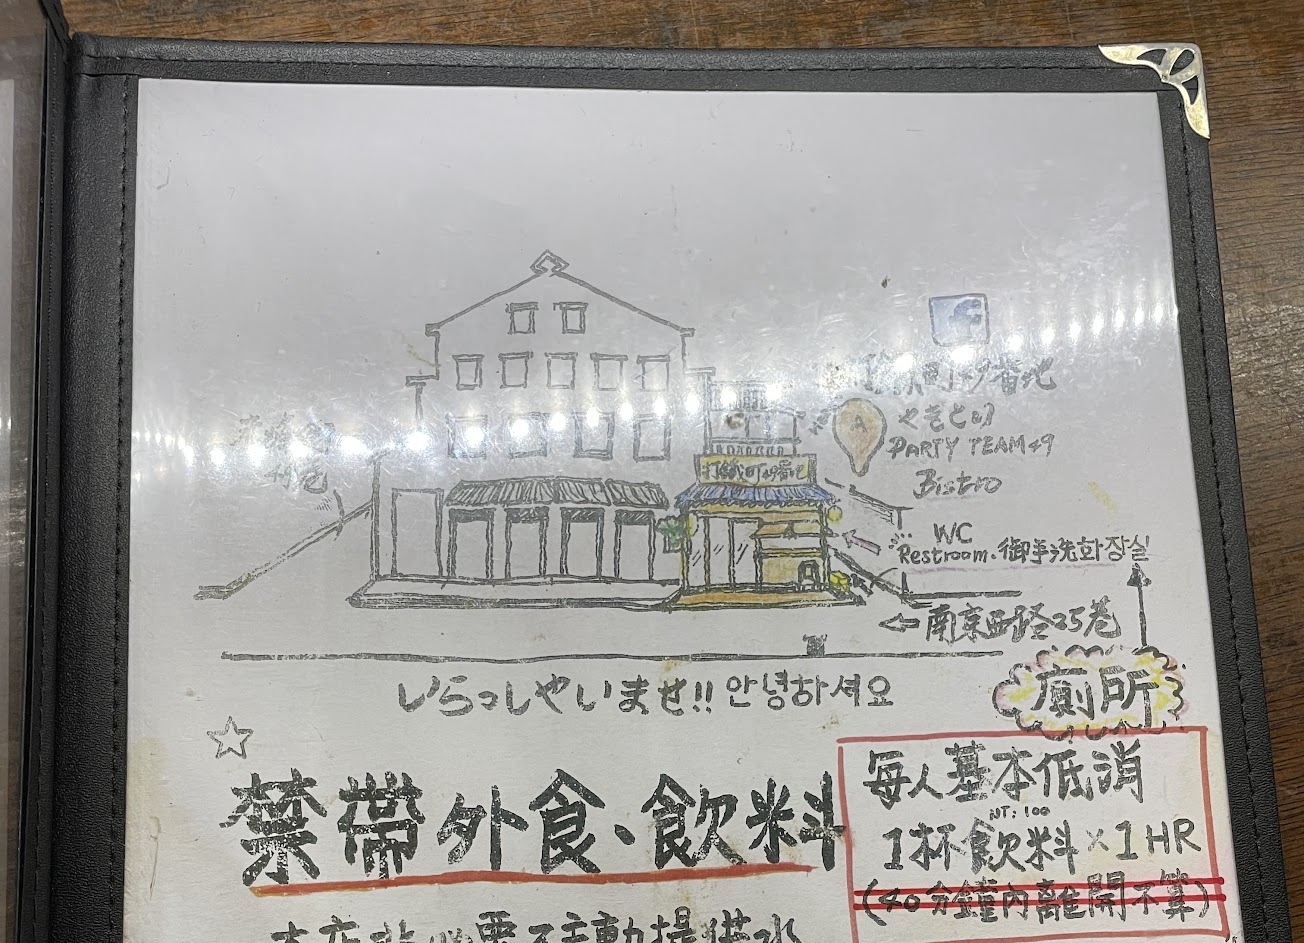 町49番地
やきとり
PARTY TEAM49
Bistro
打鐵町49番地
WC
Restroom.御手洗화장실
南京西路25巷
いらっしゃいませ!! 안녕하셔요
廁所
禁帶外食、飲料
每人基本低消
NT:100
1杯飲料×1HR
(40分鐘內離開不算)
本店非必要不主動提供水